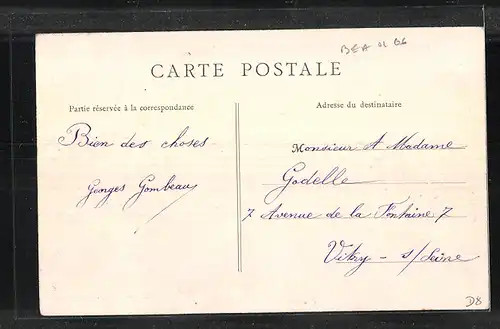 BEA 11 06
CARTE POSTALE
Partie réservée à la correspondance
Adresse du destinataire
Bien des choses
Georges Gombeau
Monsieur & Madame
Godelle
7 Avenue de la Fontaine 7
Vitry - s/Seine
D8